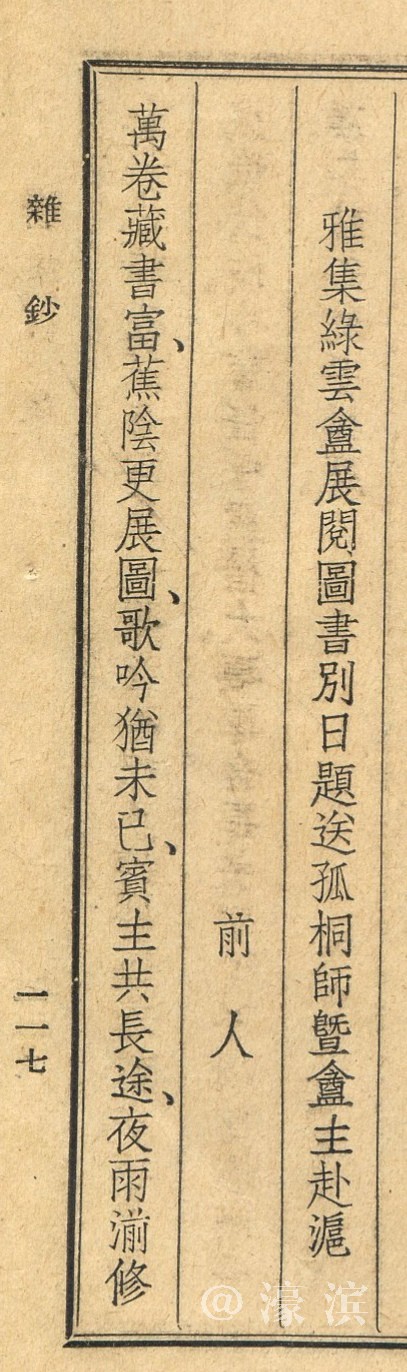 雅集綠雲盦展閱圖書別日題送孤桐師暨盦主赴滬
前人
萬卷藏書富、蕉陰更展圖、歌吟猶未已、賓主共長途、夜雨湔修
雜鈔
一一七
@濠滨